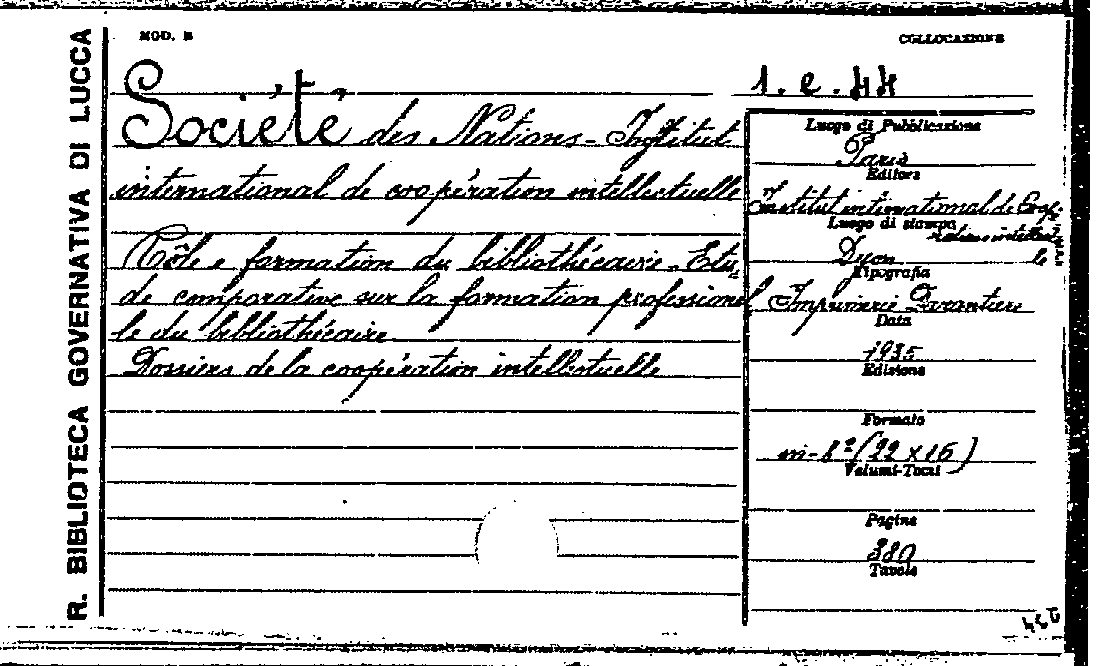 R. BIBLIOTECA GOVERNATIVA DI LUCCA
MOD. B
COLLOCAZIONE
1. e. 44
Société des Nations - Institut
international de coopération intellectuelle
Rôle e formation du bibliothécaire - Etu
de comparative sur la formation professionel
le du bibliothécaire
Dossiers de la coopération intellectuelle
Luogo di Pubblicazione
Paris
Editore
Institut international de Coopé
ration intellectuel
le
Luogo di stampa
Dijon
Tipografia
Imprimerie Darantiere
Data
1935
Edizione
Formato
in-8º (22 x 16)
Volumi-Tomi
Pagine
380
Tavole